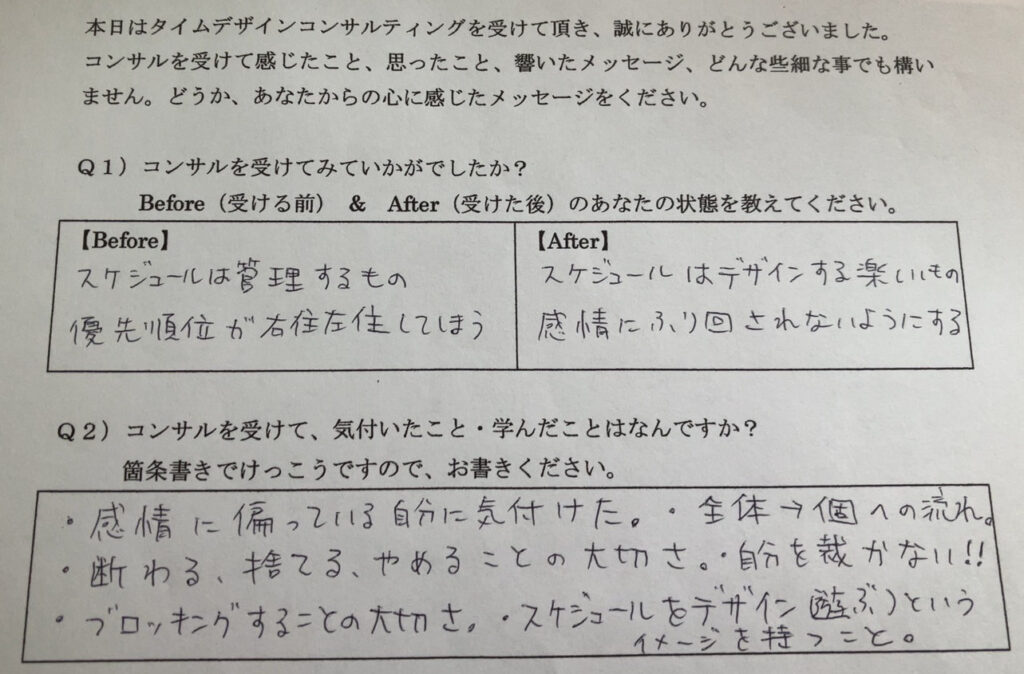 本日はタイムデザインコンサルティングを受けて頂き、誠にありがとうございました。
コンサルを受けて感じたこと、思ったこと、響いたメッセージ、どんな些細な事でも構い
ません。どうか、あなたからの心に感じたメッセージをください。
Q1）コンサルを受けてみていかがでしたか？
Before（受ける前） & After（受けた後）のあなたの状態を教えてください。
【Before】
スケジュールは管理するもの
優先順位が右往左往してしまう
【After】
スケジュールはデザインする楽しいもの
感情にふり回されないようにする
Q2）コンサルを受けて、気付いたこと・学んだことはなんですか？
箇条書きでけっこうですので、お書きください。
・感情に偏っている自分に気付けた。・全体→個への流れ。
・断わる、捨てる、やめることの大切さ。・自分を裁かない!!
・ブロッキングすることの大切さ。・スケジュールをデザイン(遊ぶ)という
イメージを持つこと。